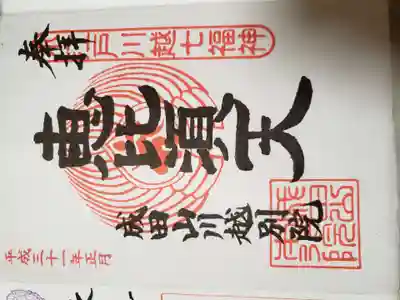 奉拝
川越七福神
恵比須天
成田山川越別院
平成三十一年正月